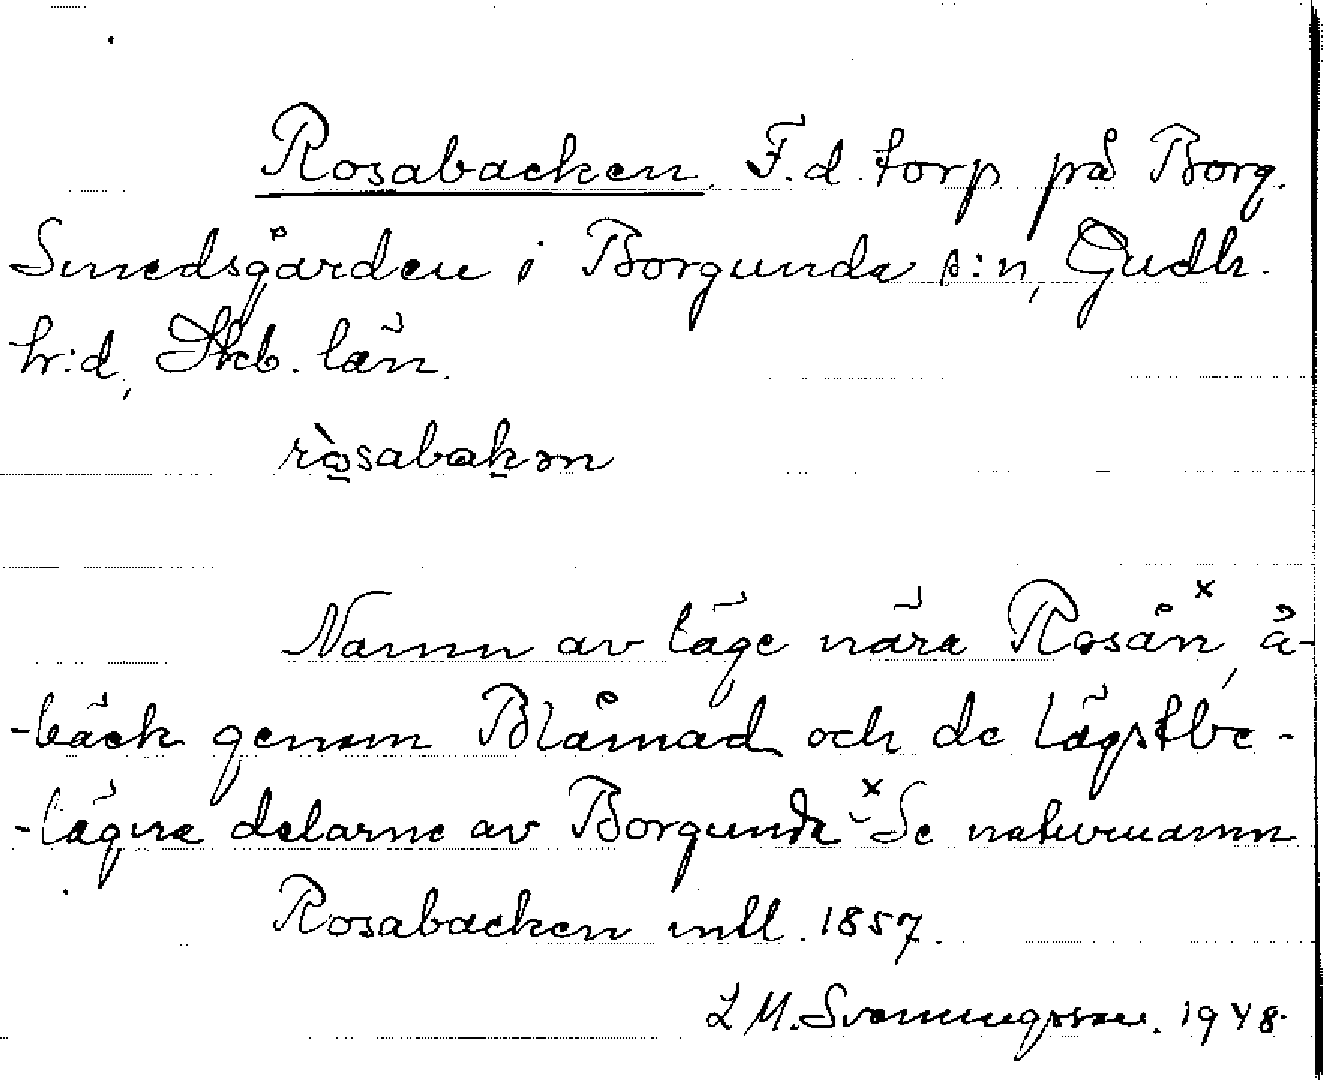 Rosabacken. F.d. torp på Borg.
Smedsgården i Borgunda s:n, Gudh.
hr:d, Skb. län.
ròsabakən
Namn av läge nära Rosån,ˣ å-
-bäck genom Blåmad och de lägstbe-
-lägna delarne av Borgunda ˣSe naturnamn
Rosabacken intl. 1857.
L M. Svenungsson. 1948.